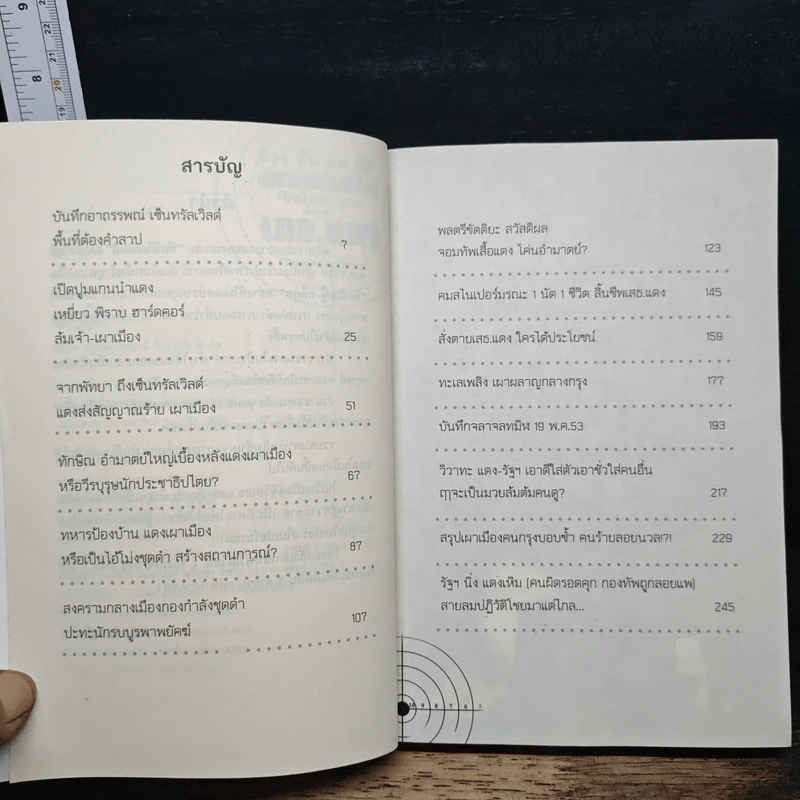 สารบัญ
บันทึกอาถรรพณ์ เซ็นทรัลเวิลด์
พื้นที่ต้องคำสาป 7
เปิดปูมแกนนำแดง
เหยี่ยว พิราบ ฮาร์ดคอร์
ล้มเจ้า-เผาเมือง 25
จากพัทยา ถึงเซ็นทรัลเวิลด์
แดงส่งสัญญาณร้าย เผาเมือง 51
ทักษิณ อำมาตย์ใหญ่เบื้องหลังแดงเผาเมือง
หรือวีรบุรุษนักประชาธิปไตย? 67
ทหารป้องบ้าน แดงเผาเมือง
หรือเป็นไอ้โม่งชุดดำ สร้างสถานการณ์? 87
สงครามกลางเมืองกองกำลังชุดดำ
ปะทะนักรบบูรพาพยัคฆ์ 107
พลตรีขัตติยะ สวัสดิผล
จอมทัพเสื้อแดง โค่นอำมาตย์? 123
คมสไนเปอร์มรณะ 1 นัด 1 ชีวิต สิ้นชีพเสธ.แดง 145
สั่งตายเสธ.แดง ใครได้ประโยชน์ 159
ทะเลเพลิง เผาผลาญกลางกรุง 177
บันทึกจลาจลทมิฬ 19 พ.ค.53 193
วิวาทะ แดง-รัฐฯ เอาดีใส่ตัวเอาชั่วใส่คนอื่น
ฤๅจะเป็นมวยล้มต้มคนดู? 217
สรุปเผาเมืองคนกรุงบอบช้ำ คนร้ายลอยนวล!?! 229
รัฐฯ นิ่ง แดงเหิม (คนผิดรอดคุก กองทัพถูกลอยแพ)
สายลมปฏิวัติโชยมาแต่ไกล... 245
10 9 8 7 6 5
9
8
21
20
19